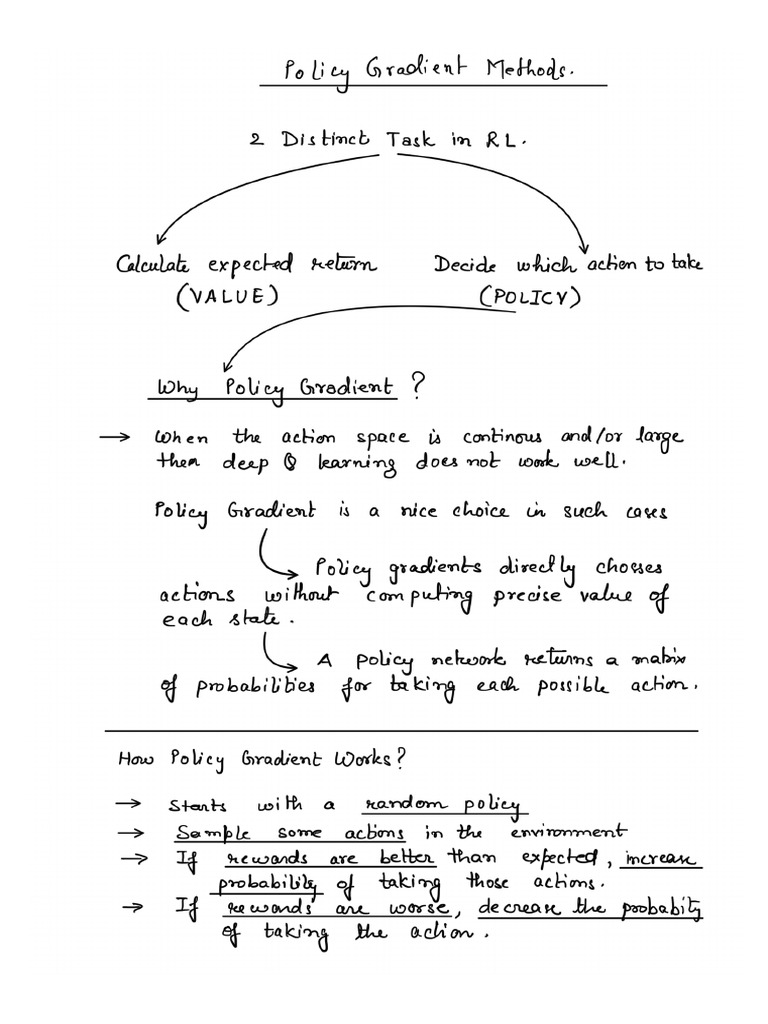 Policy Gradient Methods.
2 Distinct Task in RL.
Calculate expected return
Decide which action to take
(VALUE)
(POLICY)
Why Policy Gradient ?
→ When the action space is continous and/or large
then deep Q learning does not work well.
Policy Gradient is a nice choice in such cases
Policy gradients directly chosses
actions without computing precise value of
each state.
A policy network returns a matrix
of probabilities for taking each possible action.
How Policy Gradient Works?
→ Starts with a random policy
→ Sample some actions in the environment
→ If rewards are better than expected, increase
probability of taking those actions.
→ If rewards are worse, decrease the probabity
of taking the action.